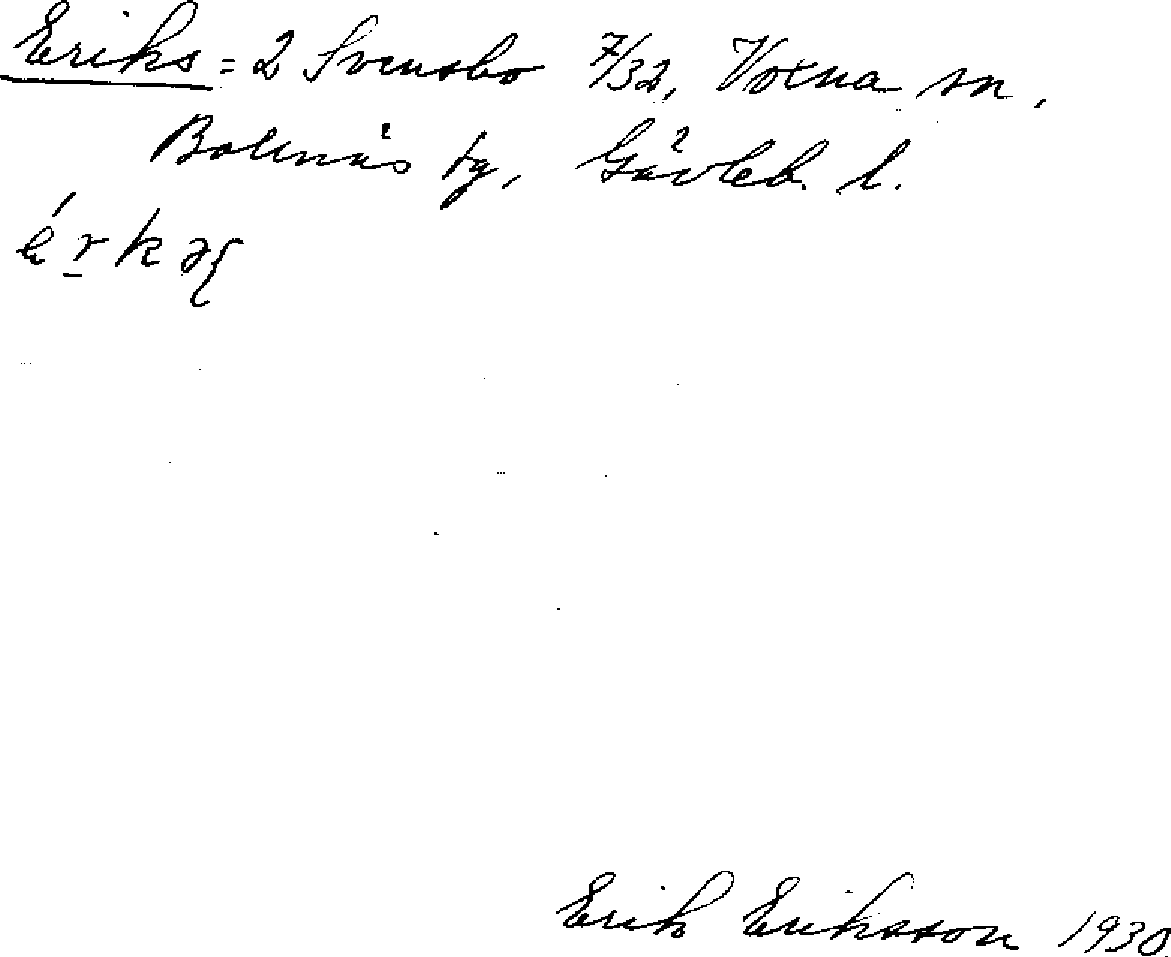 Eriks = 2 Svensbo 7/32, Voxna sn,
Bollnäs tg, Gävleb. l.
Erik Eriksson 1930